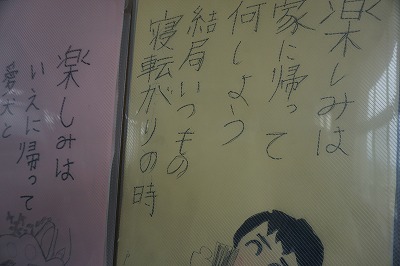 楽しみは
家に帰って
何しよう
結局いつもの
寝転がりの時
楽しみは
いえに帰って
愛犬と